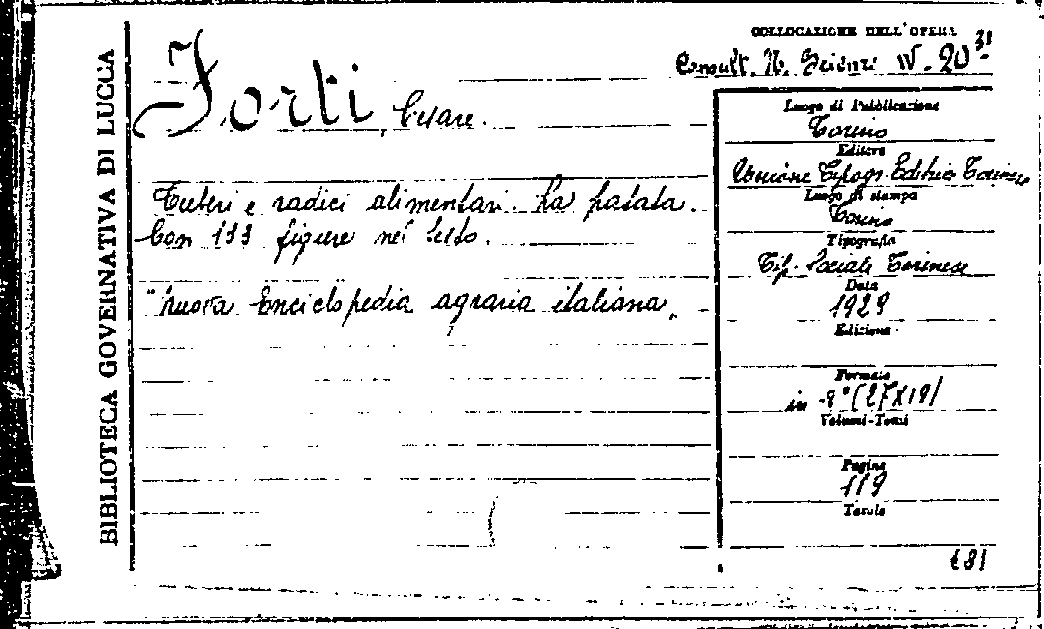 BIBLIOTECA GOVERNATIVA DI LUCCA
COLLOCAZIONE DELL'OPERA
Consult. N. Scienze IV. 20 31
Forti, Cesare.
Tuberi e radici alimentari. La patata.
Con 133 figure nel testo.
"Nuova Enciclopedia agraria italiana"
Luogo di Pubblicazione
Torino
Editore
Unione Tipogr. Editrice Torinese
Luogo di stampa
Torino
Tipografia
Tip. Sociale Torinese
Data
1929
Edizione
Formato
in -8° (27X19)
Volumi-Tomi
Pagine
119
Tavole